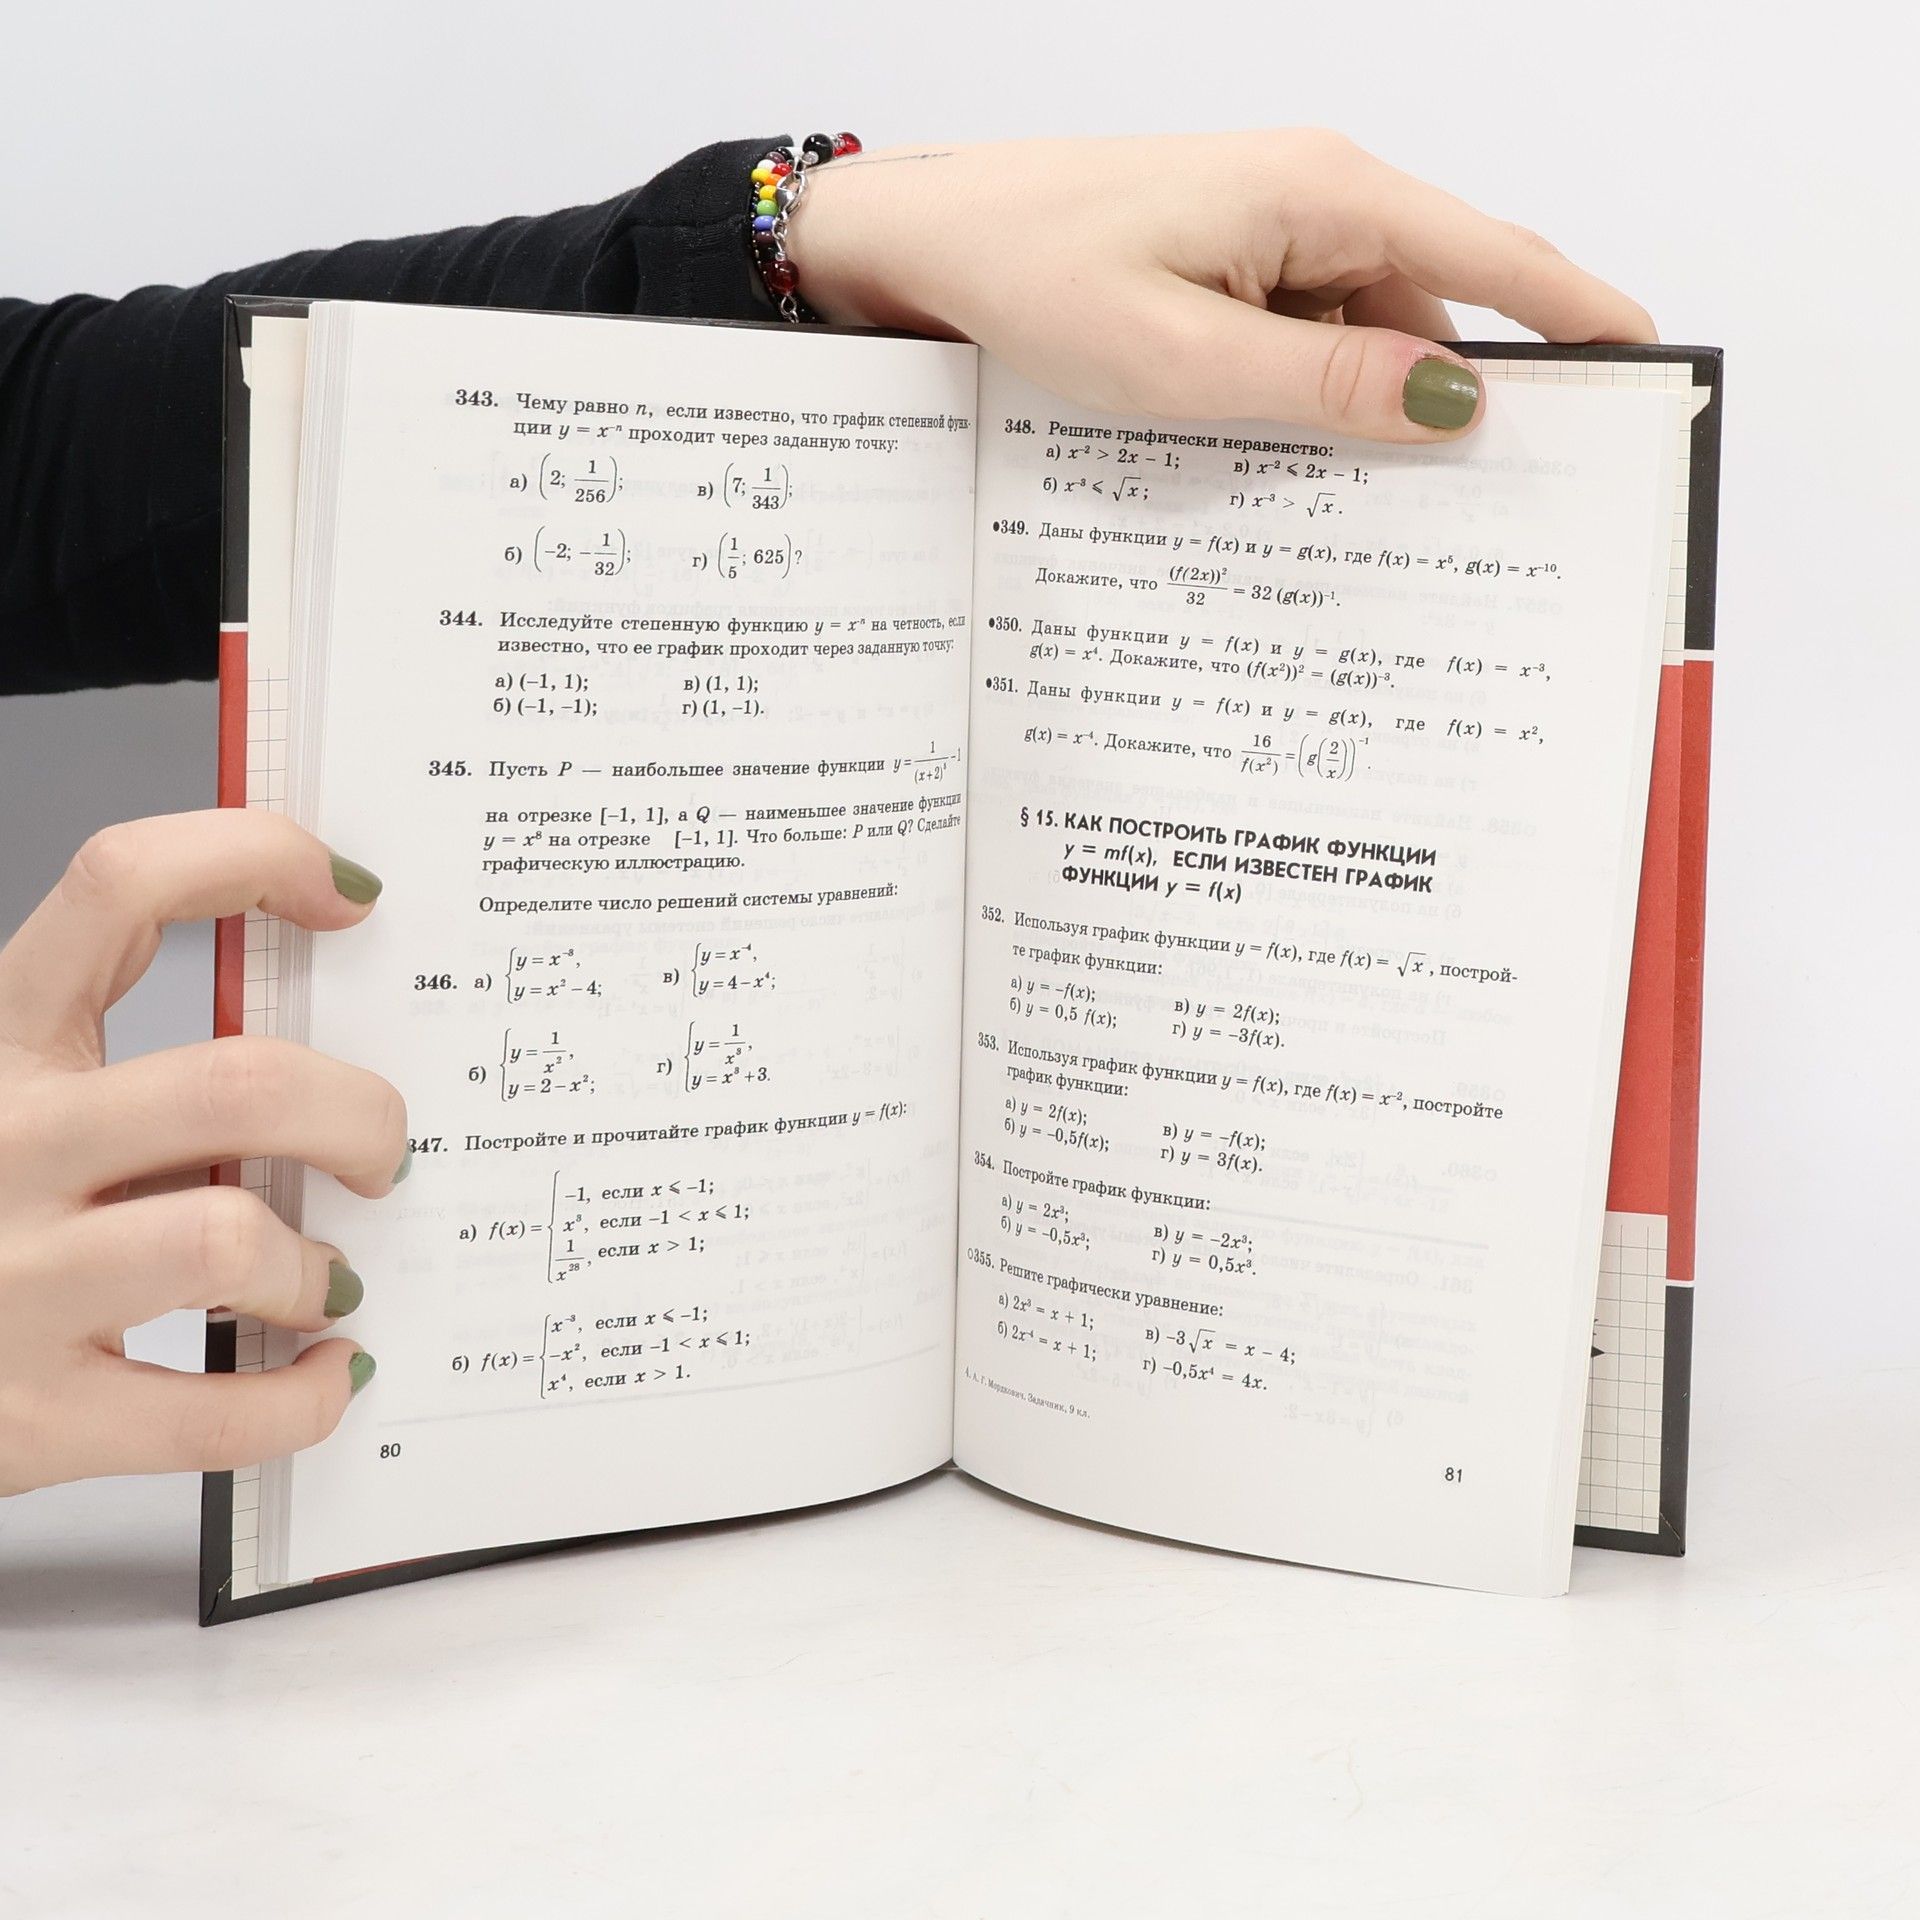 343. Чему равно n, если известно, что график степенной функ-
ции y = x⁻ⁿ проходит через заданную точку:
а) (2; 1/256); в) (7; 1/343);
б) (−2; −1/32); г) (1/5; 625)?
344. Исследуйте степенную функцию y = xⁿ на четность, если
известно, что ее график проходит через заданную точку:
а) (−1, 1); в) (1, 1);
б) (−1, −1); г) (1, −1).
345. Пусть P — наибольшее значение функции y = 1/(x+2)⁸ −1
на отрезке [−1, 1], а Q — наименьшее значение функции
y = x⁸ на отрезке [−1, 1]. Что больше: P или Q? Сделайте
графическую иллюстрацию.
Определите число решений системы уравнений:
346. а) { y = x⁻⁸, y = x² − 4; в) { y = x⁻⁴, y = 4 − x⁴;
б) { y = 1/x², y = 2 − x²; г) { y = 1/x³, y = x³ + 3.
347. Постройте и прочитайте график функции y = f(x):
а) f(x) = { −1, если x ⩽ −1;
x³, если −1 < x ⩽ 1;
1/x²⁸, если x > 1;
б) f(x) = { x⁻³, если x ⩽ −1;
−x², если −1 < x ⩽ 1;
x⁴, если x > 1.
80
348. Решите графически неравенство:
а) x⁻² > 2x − 1; в) x⁻² ⩽ 2x − 1;
б) x⁻³ ⩽ √x; г) x⁻³ > √x.
●349. Даны функции y = f(x) и y = g(x), где f(x) = x⁵, g(x) = x⁻¹⁰.
Докажите, что (f(2x))²/32 = 32 (g(x))⁻¹.
●350. Даны функции y = f(x) и y = g(x), где f(x) = x⁻³,
g(x) = x⁴. Докажите, что (f(x²))² = (g(x))⁻³.
●351. Даны функции y = f(x) и y = g(x), где f(x) = x²,
g(x) = x⁻⁴. Докажите, что 16/f(x²) = (g(2/x))⁻¹.
§ 15. КАК ПОСТРОИТЬ ГРАФИК ФУНКЦИИ
y = mf(x), ЕСЛИ ИЗВЕСТЕН ГРАФИК
ФУНКЦИИ y = f(x)
352. Используя график функции y = f(x), где f(x) = √x, построй-
те график функции:
а) y = −f(x); в) y = 2f(x);
б) y = 0,5 f(x); г) y = −3f(x).
353. Используя график функции y = f(x), где f(x) = x⁻², постройте
график функции:
а) y = 2f(x); в) y = −f(x);
б) y = −0,5f(x); г) y = 3f(x).
354. Постройте график функции:
а) y = 2x³; в) y = −2x³;
б) y = −0,5x³; г) y = 0,5x³.
○355. Решите графически уравнение:
а) 2x³ = x + 1; в) −3√x = x − 4;
б) 2x⁻⁴ = x + 1; г) −0,5x⁴ = 4x.
4. А. Г. Мордкович, Задачник, 9 кл.
81